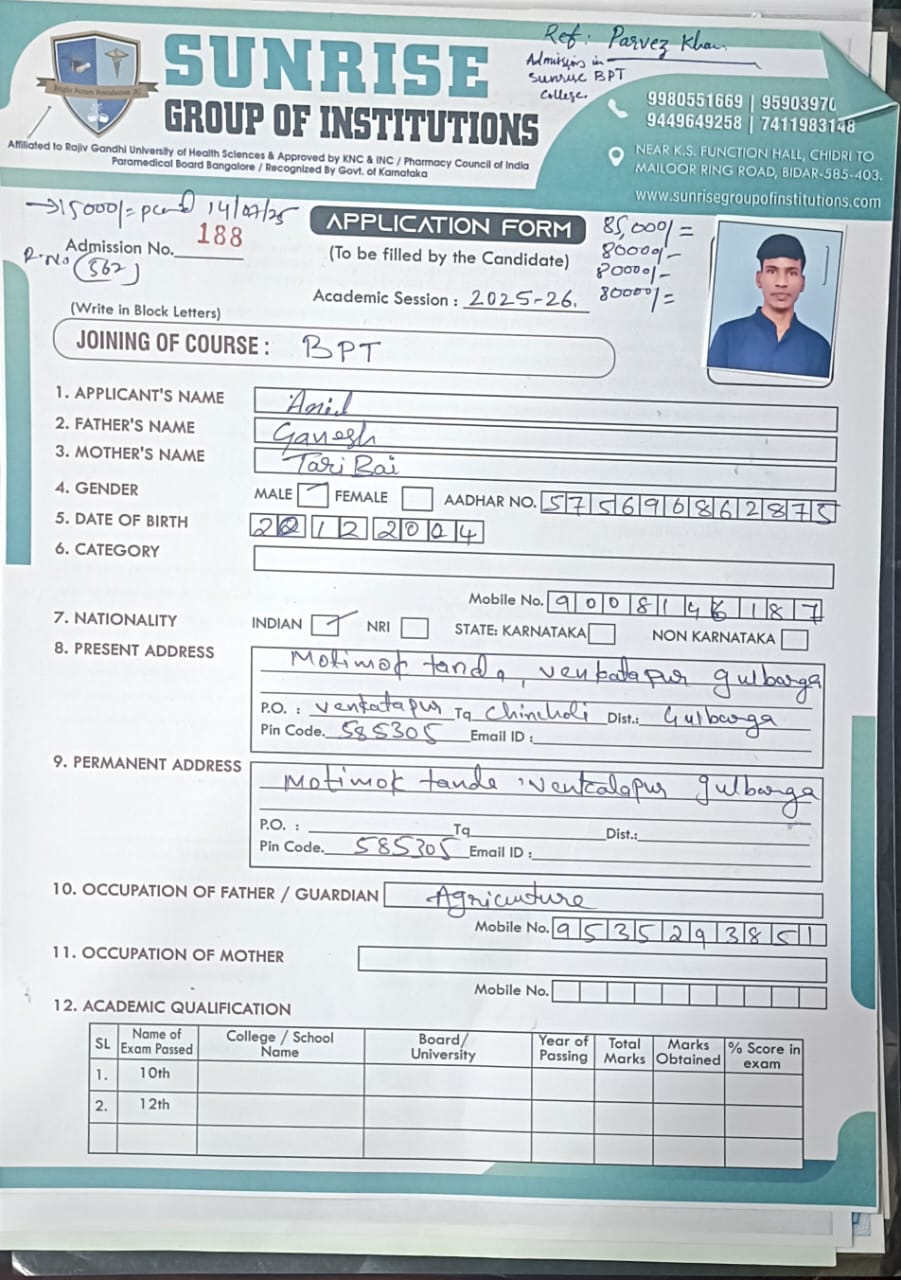 Ref: Parvez Khan.
Admission in
Sunrise BPT
College.
SUNRISE
GROUP OF INSTITUTIONS
Bright Future Foundation (R)
Affiliated to Rajiv Gandhi University of Health Sciences & Approved by KNC & INC / Pharmacy Council of India
Paramedical Board Bangalore / Recognized By Govt. of Karnataka
9980551669 | 95903970
9449649258 | 7411983148
NEAR K.S. FUNCTION HALL, CHIDRI TO
MAILOOR RING ROAD, BIDAR-585-403.
www.sunrisegroupofinstitutions.com
→15000/= paid 14/07/25
APPLICATION FORM
85,000/=
80000/-
80000/-
80000/=
Admission No. 188
R.No (562)
(To be filled by the Candidate)
Academic Session : 2025-26.
(Write in Block Letters)
JOINING OF COURSE : BPT
1. APPLICANT'S NAME Anil
2. FATHER'S NAME Ganesh
3. MOTHER'S NAME Tari Bai
4. GENDER MALE FEMALE AADHAR NO. 575696862875
5. DATE OF BIRTH 20 12 2004
6. CATEGORY
Mobile No. 9008146187
7. NATIONALITY INDIAN NRI STATE: KARNATAKA NON KARNATAKA
8. PRESENT ADDRESS Motimok tanda, venkatapur gulbarga
P.O. : venkatapur Tq Chincholi Dist.: Gulbarga
Pin Code. 585305 Email ID :
9. PERMANENT ADDRESS Motimok tande venkalapur gulbarga
P.O. : Tq Dist.:
Pin Code. 585305 Email ID :
10. OCCUPATION OF FATHER / GUARDIAN Agricuture
Mobile No. 9535293851
11. OCCUPATION OF MOTHER
Mobile No.
12. ACADEMIC QUALIFICATION
SL Name of Exam Passed College / School Name Board/ University Year of Passing Total Marks Marks Obtained % Score in exam
1. 10th
2. 12th